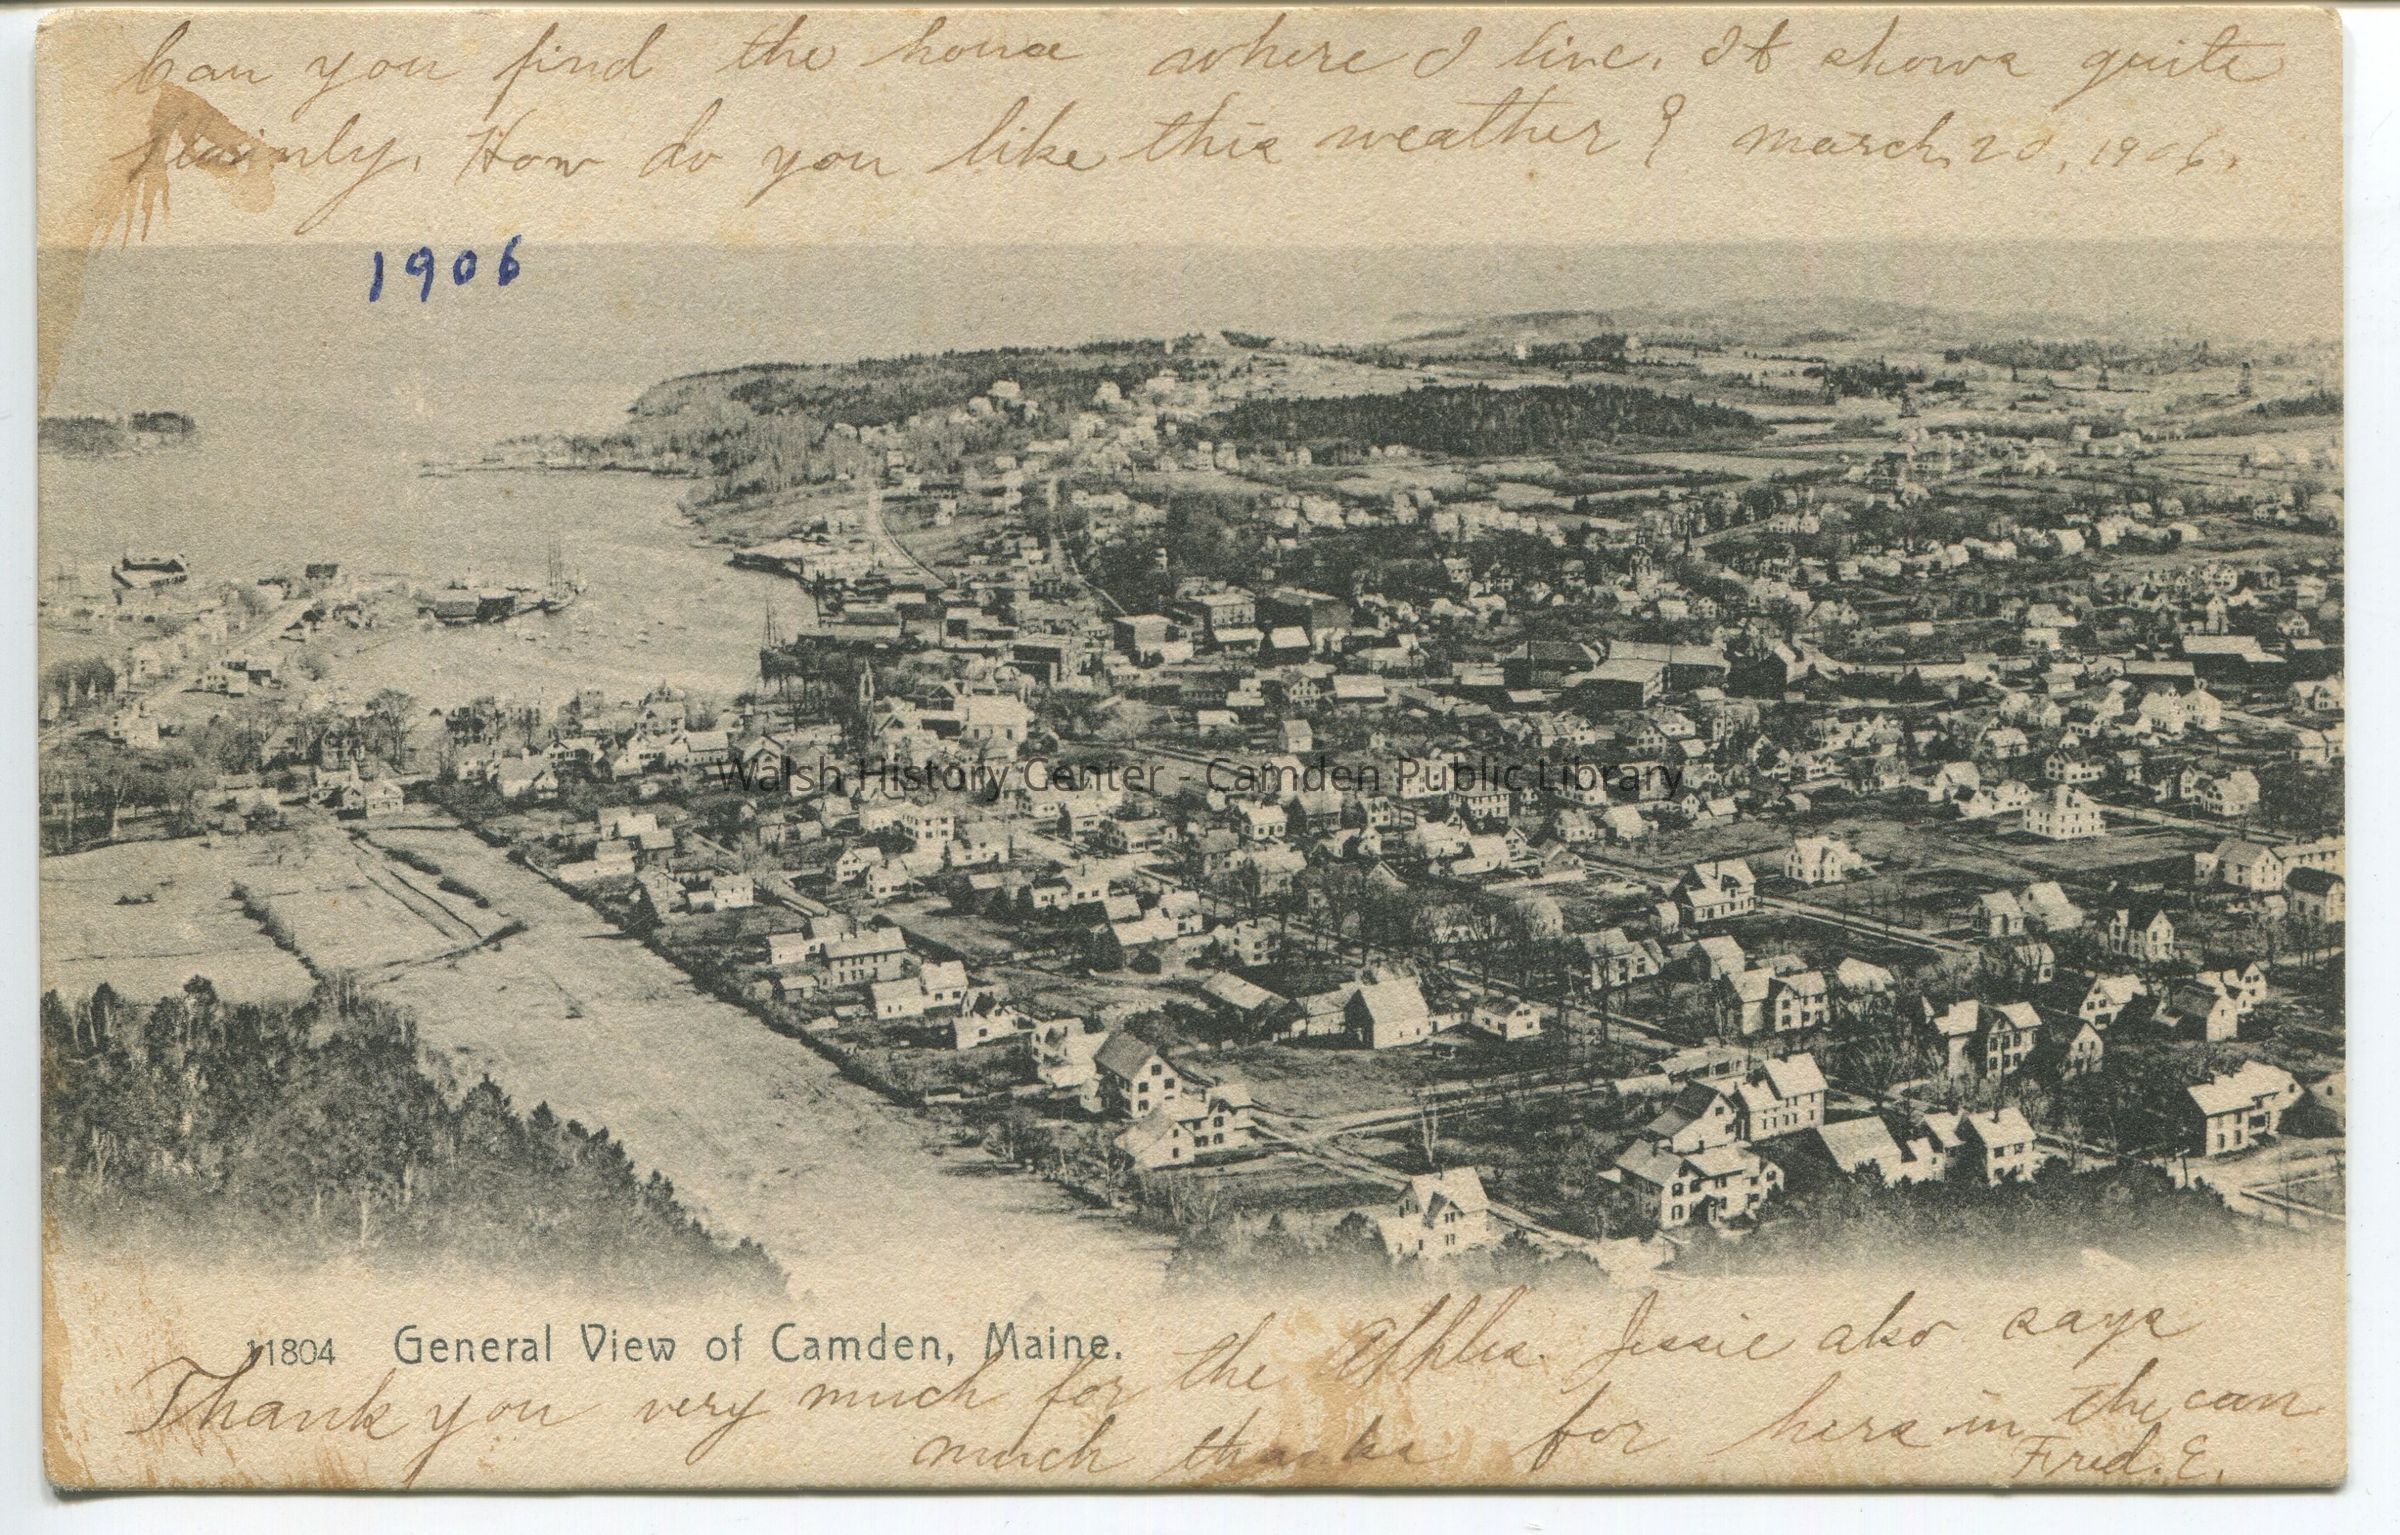 Can you find the house where I live. It shows quite
plainly. How do you like this weather? March 20, 1906.
1906
Walsh History Center - Camden Public Library
11804 General View of Camden, Maine.
Thank you very much for the Apples. Jessie also says
much thanks for hers in the can
Fred. E.